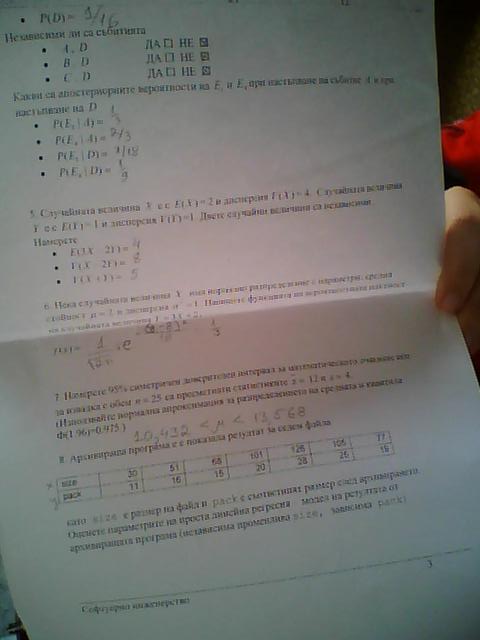 • P(D) = 1/16
Независими ли са събитията
• A, D ДА ☐ НЕ ☒
• B, D ДА ☐ НЕ ☒
• C, D ДА ☐ НЕ ☒
Какви са апостериорните вероятности на E₁ и при настъпване на събитие A и при
настъпване на D
• P(E₁ | A) = 1/3
• P(A) = 2/3
• P(E₁ | D) =
• P(D) = 1/9
5. Случайната величина X е с E(X) = 2 и дисперсия V(X) = 4. Случайната величина
Y е с E(Y) = 1 и дисперсия V(Y) = 1. Двете случайни величини са независими.
Намерете
• E(3X - 2Y) = 4
• V(X - 2Y) = 8
• V(X + Y) = 5
6. Нека случайната величина X има нормално разпределение с параметри: средна
стойност μ = 2 и дисперсия σ² = 1. Напишете функцията на вероятностната плътност
на случайната величина Y = 3X + 2.
7. Намерете 95% симетричен доверителен интервал за математическото очакване ако
за извадка с обем n = 25 са пресметнати статистиките x̄ = 12 и s = 4.
(Използвайте нормална апроксимация за разпределението на средната и квантила
Ф(1.96)=0.975.)
10,432 < μ < 13,568
8. Архивираща програма е показала резултат за седем файла
x size 30 51 68 101 126 105 77
y pack 11 16 15 20 28 25 16
като size е размер на файл и pack е съответният размер след архивирането.
Оценете параметрите на проста линейна регресия - модел на резултата от
архивиращата програма (независима променлива size, зависима pack)
Софтуерно инженерство 3